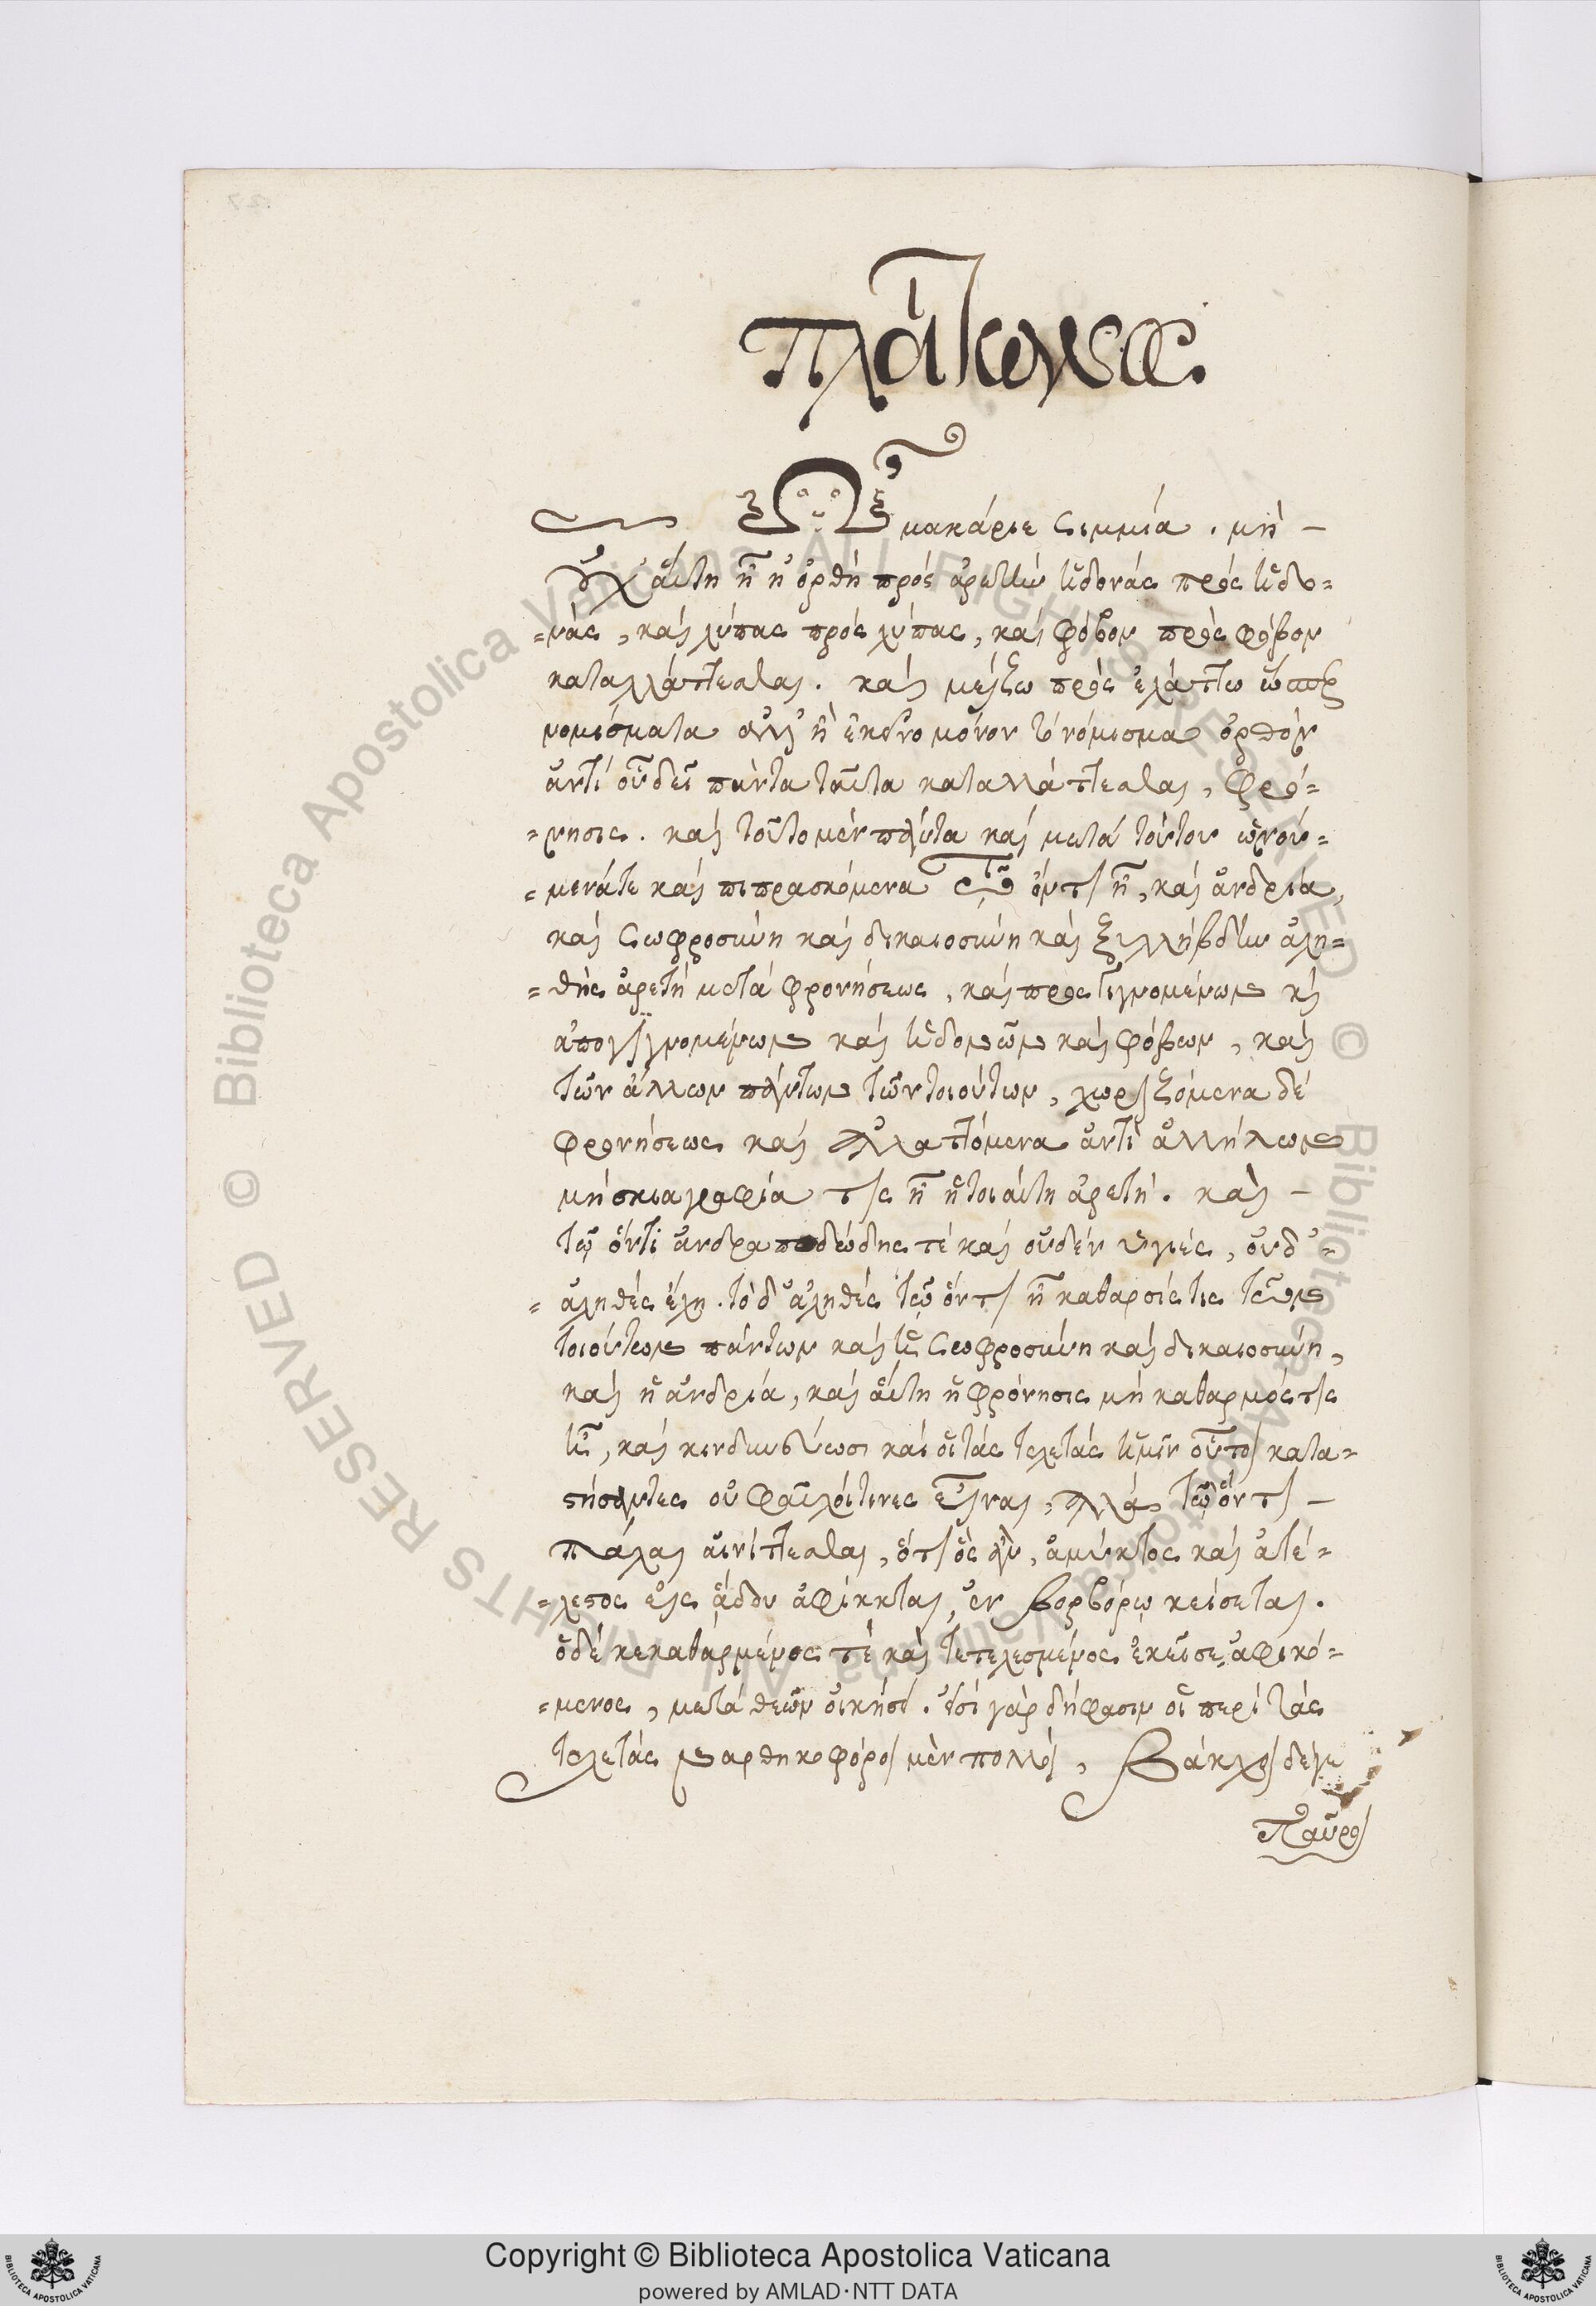 πλάτωνος.
Ὦ μακάριε Σιμμία. μὴ —
οὐχ αὕτη ᾖ ἡ ὀρθὴ πρὸς ἀρετὴν ἡδονὰς πρὸς ἡδο=
=νὰς, καὶ λύπας πρὸς λύπας, καὶ φόβον πρὸς φόβον
καταλλάττεσθαι. καὶ μείζω πρὸς ἐλάττω ὥσπερ
νομίσματα ἀλλ' ᾖ ἐκεῖνο μόνον τὸ νόμισμα ὀρθὸν
ἀντὶ οὗ δεῖ πάντα ταῦτα καταλλάττεσθαι, φρό=
=νησις. καὶ τούτου μὲν πάντα καὶ μετὰ τούτου ὠνού=
=μενά τε καὶ πιπρασκόμενα τῷ ὄντι ᾖ, καὶ ἀνδρία,
καὶ Σωφροσύνη καὶ δικαιοσύνη καὶ ξυλλήβδην ἀλη=
=θὴς ἀρετὴ μετὰ φρονήσεως, καὶ προςγιγνομένων καὶ
ἀπογιγνομένων καὶ ἡδονῶν καὶ φόβων, καὶ
τῶν ἄλλων πάντων τῶν τοιούτων, χωριζόμενα δὲ
φρονήσεως καὶ ἀλλαττόμενα ἀντὶ ἀλλήλων
μὴ σκιαγραφία τις ᾖ ἡ τοιαύτη ἀρετή. καὶ —
τῷ ὄντι ἀνδραποδώδης τὲ καὶ οὐδὲν ὑγιὲς, οὐδ'=
= ἀληθὲς ἔχῃ. τὸ δ' ἀληθὲς τῷ ὄντι ᾖ κάθαρσίς τις τῶν
τοιούτων πάντων καὶ ἡ Σωφροσύνη καὶ δικαιοσύνη,
καὶ ἡ ἀνδρία, καὶ αὕτη ἡ φρόνησις μὴ καθαρμός τις
ᾖ, καὶ κινδυνεύωσι καὶ οἱ τὰς τελετὰς ἡμῖν οὗτοι κατα=
στήσαντες οὐ φαῦλοί τινες εἶναι, ἀλλὰ τῷ ὄντι —
πάλαι αἰνίττεσθαι, ὅτι ὃς ἂν, ἀμύητος καὶ ἀτέ=
=λεστος εἰς ᾅδου ἀφίκηται, ἐν βορβόρῳ κείσεται.
ὁ δὲ κεκαθαρμένος τὲ καὶ τετελεσμένος ἐκεῖσε ἀφικό=
=μενος, μετὰ θεῶν οἰκήσει. εἰσὶ γὰρ δή φασιν οἱ περὶ τὰς
τελετὰς ναρθηκοφόροι μὲν πολλοὶ, Βάκχοι δέ γε
παῦροι